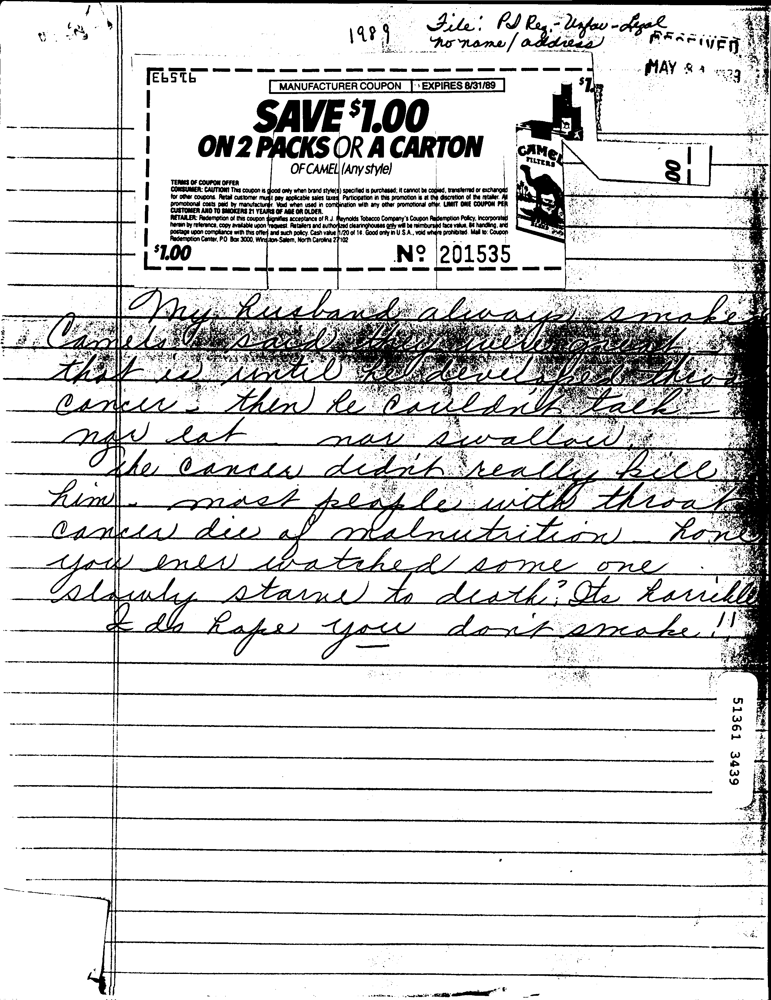 1989
File: PJ Rey.- Unfav-Legal
no name/address
RECEIVED
MAY
E65T6
MANUFACTURER COUPON EXPIRES 8/31/89
SAVE $1.00
ON 2 PACKS OR A CARTON
OF CAMEL (Any style)
$1.
CAMEL
FILTERS
1
00
TERMS OF COUPON OFFER
CONSUMER: CAUTION! This coupon is good only when brand style(s) specified is purchased; it cannot be copied, transferred or exchanged
for other coupons. Retail customer must pay applicable sales taxes. Participation in this promotion is at the discretion of the retailer. All
promotional costs paid by manufacturer. Void when used in combination with any other promotional offer. LIMIT ONE COUPON PER
CUSTOMER AND TO SMOKERS 21 YEARS OF AGE OR OLDER.
RETAILER: Redemption of this coupon signifies acceptance of R.J. Reynolds Tobacco Company's Coupon Redemption Policy, incorporated
herein by reference, copy available upon request. Retailers and authorized clearinghouses only will be reimbursed face value, 8¢ handling, and
postage upon compliance with this offer and such policy. Cash value 1/20 of 1¢. Good only in U.S.A., void where prohibited. Mail to: Coupon
Redemption Center, P.O. Box 3000, Winston-Salem, North Carolina 27102
$1.00
Nº 201535
My husband always smoke
Camels - said they were great
that is until he developed throa
cancer - then he couldn't talk -
nor eat - nor swallow.
The cancer didn't really kill
him - most people with throat
cancer die of malnutrition - have
you ever watched some one
slowly starve to death? Its horrible
I do hope you don't smoke!!
51361 3439